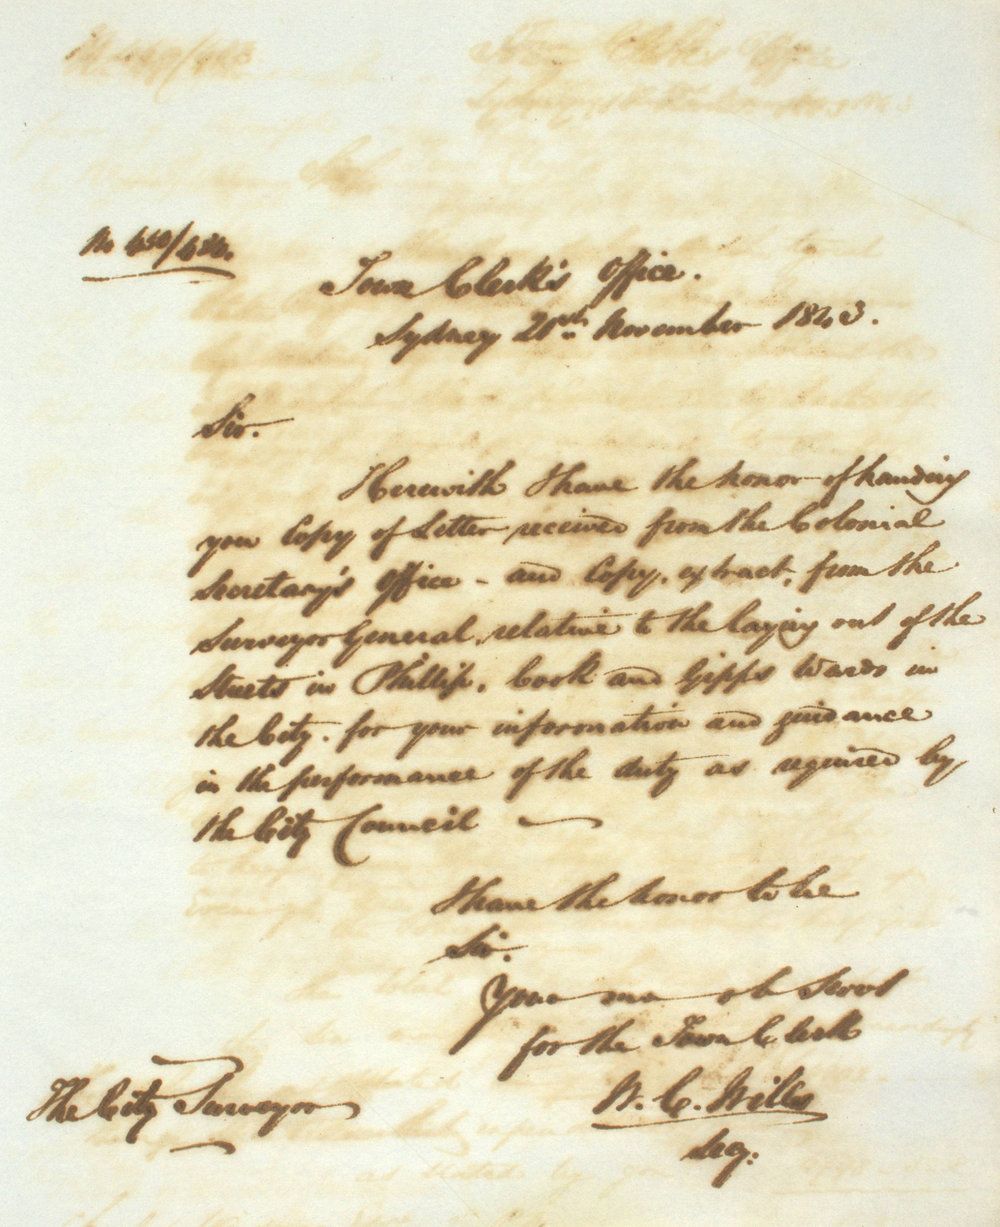 No 450/484.
Town Clerk's Office.
Sydney 20th November 1843.
Sir.
Herewith I have the honor of handing
you Copy of Letter received from the Colonial
Secretary's Office - and Copy, extract, from the
Surveyor General, relative to the laying out of the
Streets in Phillip, Cook and Gipps Wards in
the City. for your information and guidance
in the performance of the duty as required by
the City Council
I have the honor to be
Sir.
Your mo ob Servt
for the Town Clerk
W. C. Wills
The City Surveyor